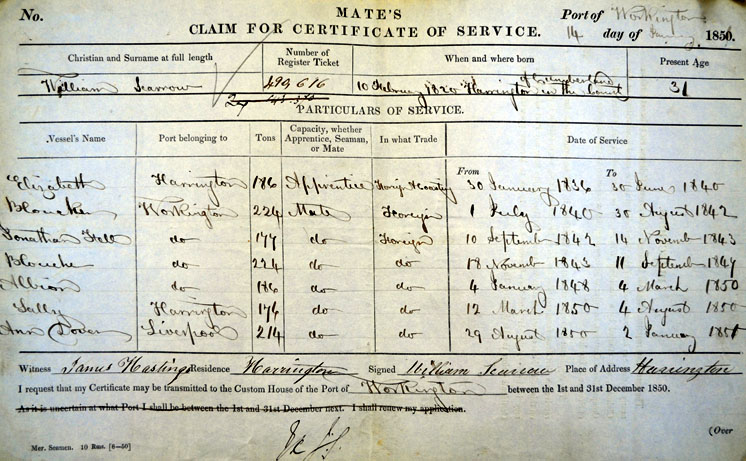 No. MATE'S Port of Workington
CLAIM FOR CERTIFICATE OF SERVICE. 14 day of January 1851
Christian and Surname at full length Number of Register Ticket When and where born Present Age
William Scarrow 499,616 10 February 1820 Harrington in the County of Cumberland 31
PARTICULARS OF SERVICE.
Vessel's Name Port belonging to Tons Capacity, whether Apprentice, Seaman, or Mate In what Trade Date of Service
From To
Elizabeth Harrington 186 Apprentice Foreign & Coasting 30 January 1836 30 June 1840
Workington 224 Mate Foreyn 1 July 1840 30 August 1842
Jonathan Fell do 177 do Foreign 10 September 1842 14 November 1843
do 224 do do 18 Novemb 1843 11 September 1847
Albion do 186 do do 4 January 1848 4 March 1850
Sally Harrington 174 do do 12 March 1850 4 August 1850
Ann Liverpool 214 do do 29 August 1850 2 January 1851
Witness James Hastings Residence Harrington Signed William Scarrow Place of Address Harrington
I request that my Certificate may be transmitted to the Custom House of the Port of Workington between the 1st and 31st December 1850.
As it is uncertain at what Port I shall be between the 1st and 31st December next. I shall renew my application.
(Over
Mer. Seamen. 10 Rms. [8—50]